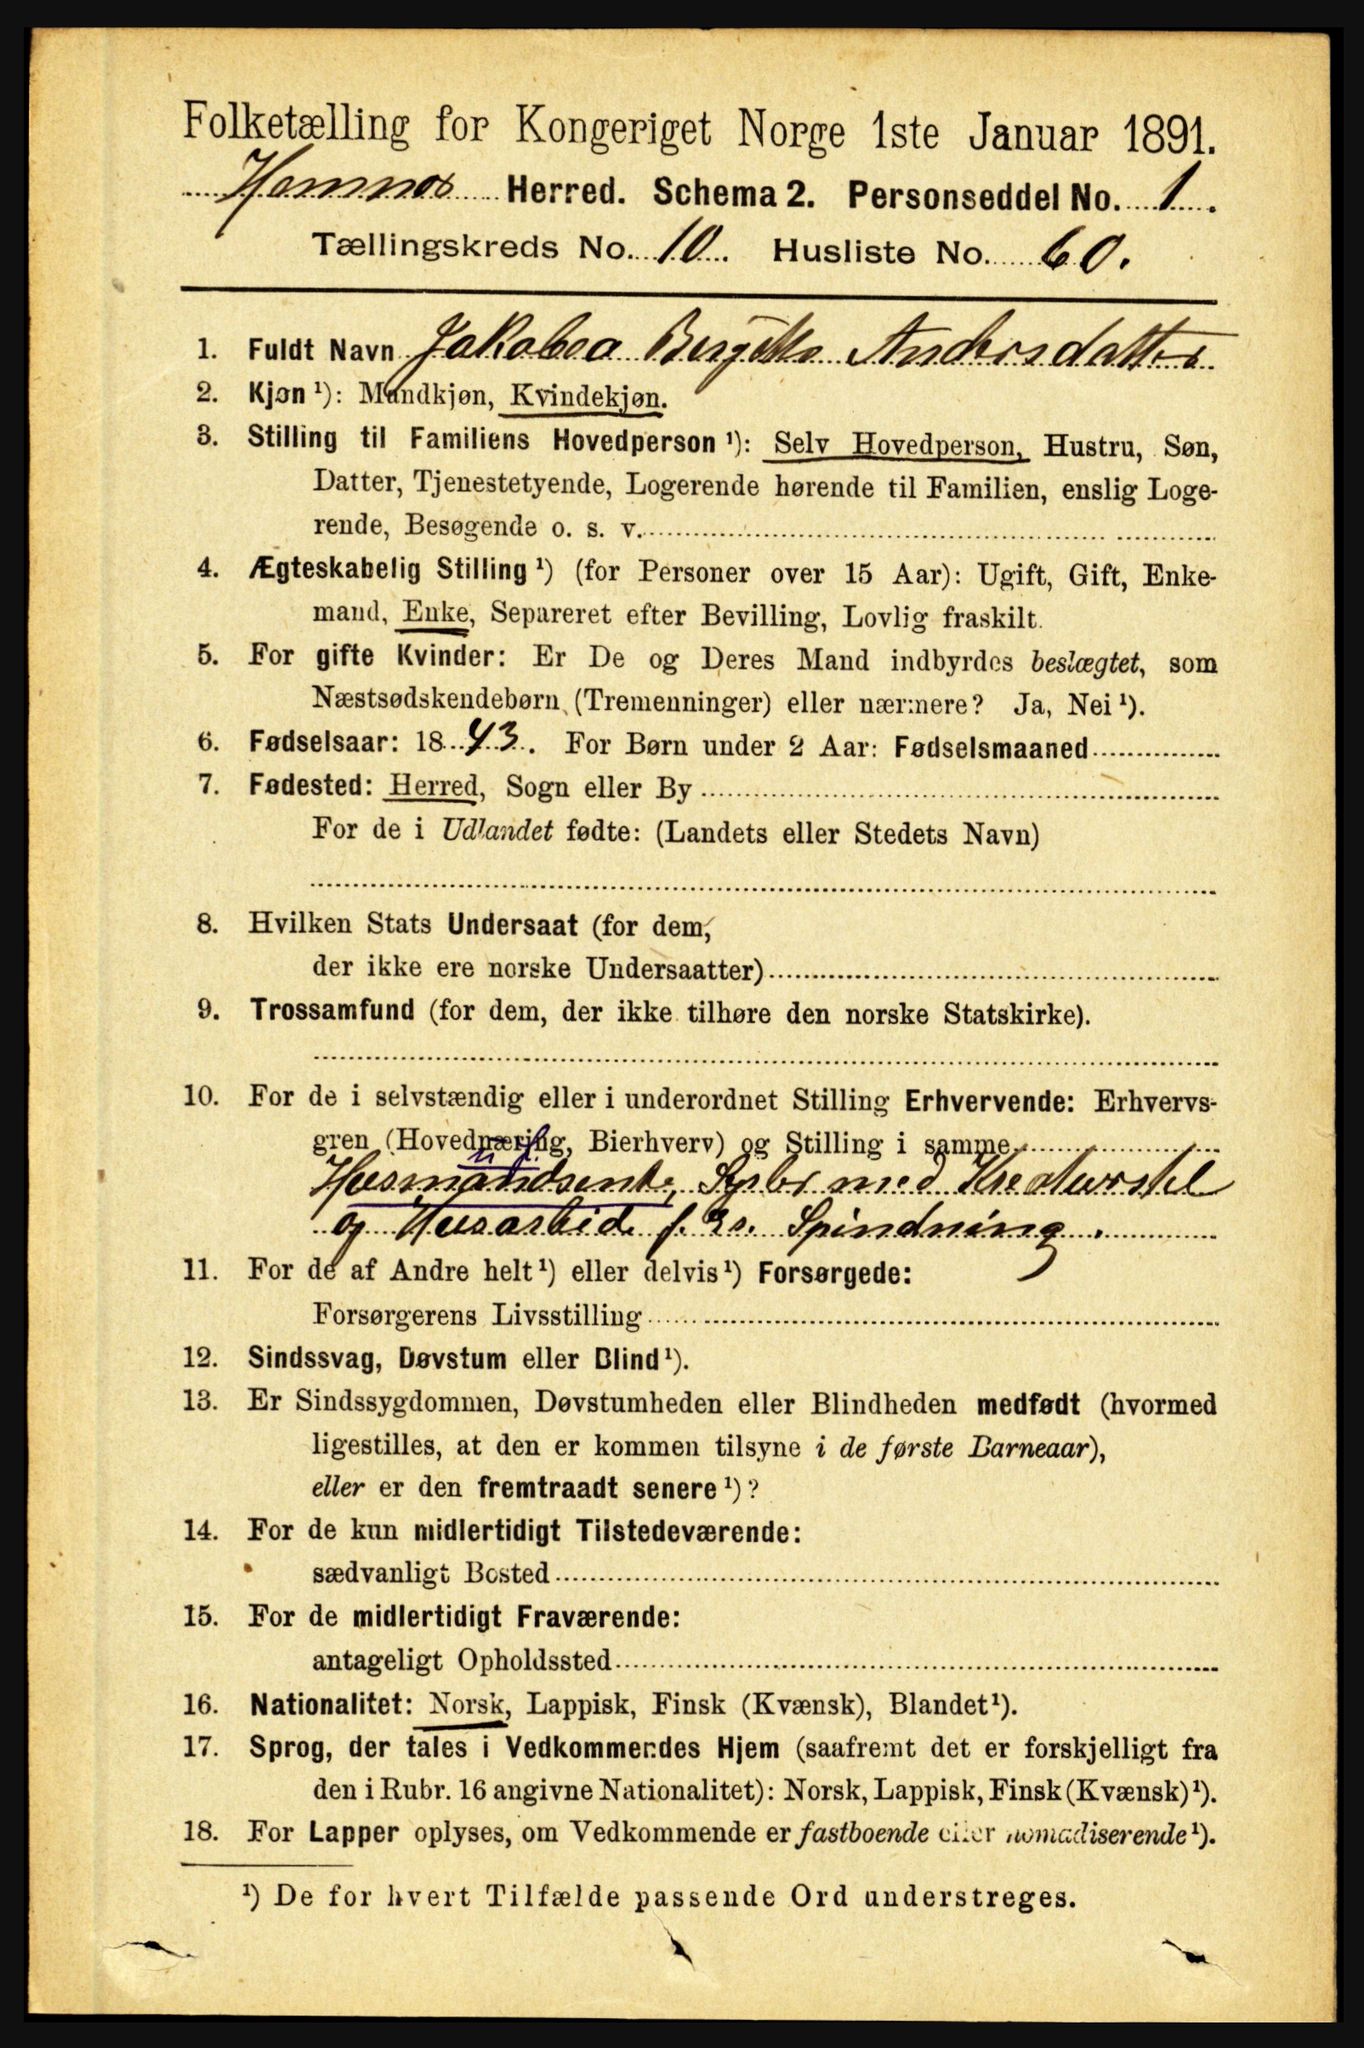 Folketælling for Kongeriget Norge 1ste Januar 1891.
Hemnes Herred. Schema 2. Personseddel No. 1.
Tællingskreds No. 10. Husliste No. 60.
1. Fuldt Navn Jakobea Bergitte Andersdatter
2. Kjøn ¹): Mandkjøn, Kvindekjøn.
3. Stilling til Familiens Hovedperson ¹): Selv Hovedperson, Hustru, Søn,
Datter, Tjenestetyende, Logerende hørende til Familien, enslig Loge-
rende, Besøgende o. s. v.
4. Ægteskabelig Stilling ¹) (for Personer over 15 Aar): Ugift, Gift, Enke-
mand, Enke, Separeret efter Bevilling, Lovlig fraskilt.
5. For gifte Kvinder: Er De og Deres Mand indbyrdes beslægtet, som
Næstsødskendebørn (Tremenninger) eller nærmere? Ja, Nei ¹).
6. Fødselsaar: 1843. For Børn under 2 Aar: Fødselsmaaned
7. Fødested: Herred, Sogn eller By
For de i Udlandet fødte: (Landets eller Stedets Navn)
8. Hvilken Stats Undersaat (for dem,
der ikke ere norske Undersaatter)
9. Trossamfund (for dem, der ikke tilhøre den norske Statskirke).
10. For de i selvstændig eller i underordnet Stilling Erhvervende: Erhvervs-
gren (Hovednæring, Bierhverv) og Stilling i samme
Husmandsenke, Sysler med Kreaturstel
og Husarbide f. Ex. Spindning.
11. For de af Andre helt ¹) eller delvis ¹) Forsørgede:
Forsørgerens Livsstilling
12. Sindssvag, Døvstum eller Blind ¹).
13. Er Sindssygdommen, Døvstumheden eller Blindheden medfødt (hvormed
ligestilles, at den er kommen tilsyne i de første Barneaar),
eller er den fremtraadt senere ¹)?
14. For de kun midlertidigt Tilstedeværende:
sædvanligt Bosted
15. For de midlertidigt Fraværende:
antageligt Opholdssted
16. Nationalitet: Norsk, Lappisk, Finsk (Kvænsk), Blandet ¹).
17. Sprog, der tales i Vedkommendes Hjem (saafremt det er forskjelligt fra
den i Rubr. 16 angivne Nationalitet): Norsk, Lappisk, Finsk (Kvænsk) ¹).
18. For Lapper oplyses, om Vedkommende er fastboende eller nomadiserende ¹).
¹) De for hvert Tilfælde passende Ord understreges.